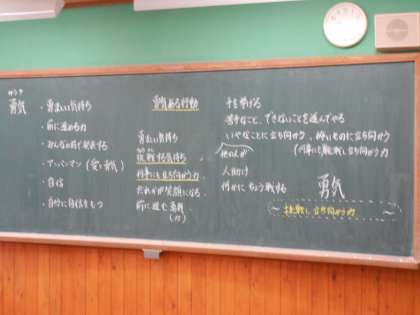 ゆうき
勇気
・勇ましい気持ち
・前に進める力
・みんなの前で発表する
・アンパンマン(愛と勇気)
・自信
・自分に自信をもつ
勇気ある行動
勇ましい気持ち
挑戦する気持ち
何事にも立ち向かう力
だれかが笑顔になる
前に進む
手を挙げる
苦手なこと、できないことを進んでやる
いやなことに立ち向かう、怖いものに立ち向かう
(何事にも挑戦し立ち向かう力)
他の人が
人助け
何かにちょう戦する
勇気
~挑戦し立ち向かう力~